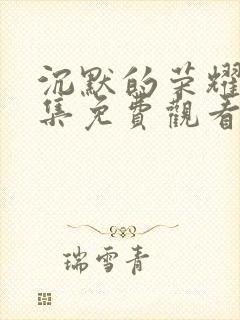 沉默的荣耀
集免費觀看
瑞雪青